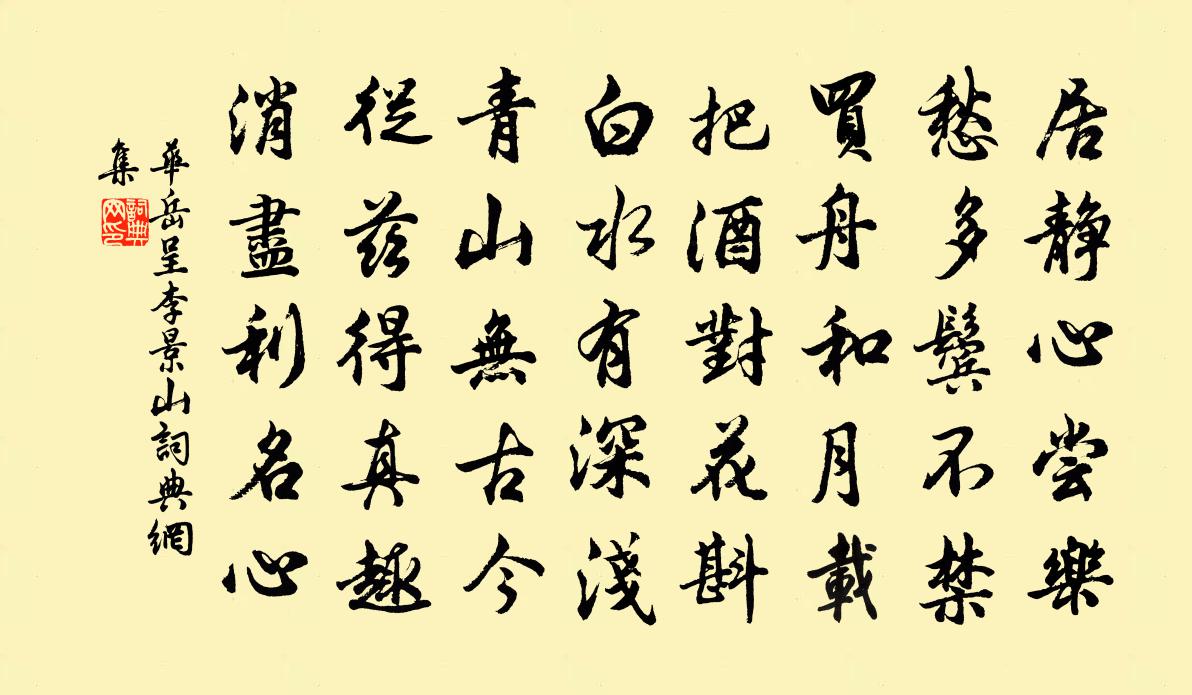 居静心尝樂
愁多鬓不禁
買舟和月載
把酒對花斟
白水有深淺
青山無古今
從茲得真趣
消盡利名心
華岳呈李景山詞典網
集
詞典网印